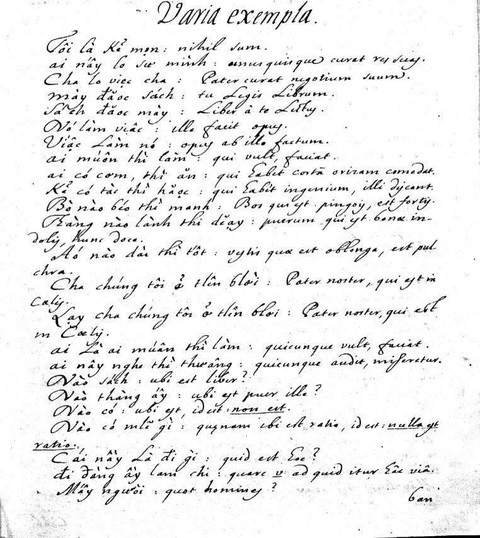 Varia exempla.
Tôi là Kẻ mọn : nihil sum.
ai nấy lo sự mình : unusquisque curat res suas.
Cha lo việc cha : Pater curat negotium suum.
mày đăọc sách : tu Legis Librum.
Sách đăọc mày : Liber à te Legitur.
Nó làm viậc : ille facit opus.
Viậc Làm nó : opus ab illo factum.
ai muốn thì làm : qui vult, faciat.
ai có cơm, thì ăn : qui habit coctā orizam comedat.
Kẻ có tài thì hăọc : qui habit ingenium, illi discant.
Bò nào béo thì mạnh : Bos qui est pingvis, est fortis.
Thàng nào lành thì dạy : puerum qui est bonæ in-
dolis, hunc doce.
Áó nào dài thì tốt : vestis quæ est oblonga, est pul
chra.
Cha chúng tôi ở tlên blời : Pater noster, qui est in
Cælis.
Lạy cha chúng tôi ở tlên blời : Pater noster, qui est
in Cælis.
ai Là ai muấn thì làm : quicunque vult, faciat.
ai nấy nghe thì thương : quicunque audit, miseretur.
Nào sách : ubi est liber?
Nào thàng ấy : ubi est puer ille?
Nào có : ubi est, id est : non est.
Nào có mlẽ gì : quænam ibi est ratio, id est : nulla est
ratio.
Cái nầy Là đí gì : quid est hoc?
đi đàng ấy làm chi : quare v ad quid itur hâc viâ.
Mấy người : quot homines?
ban